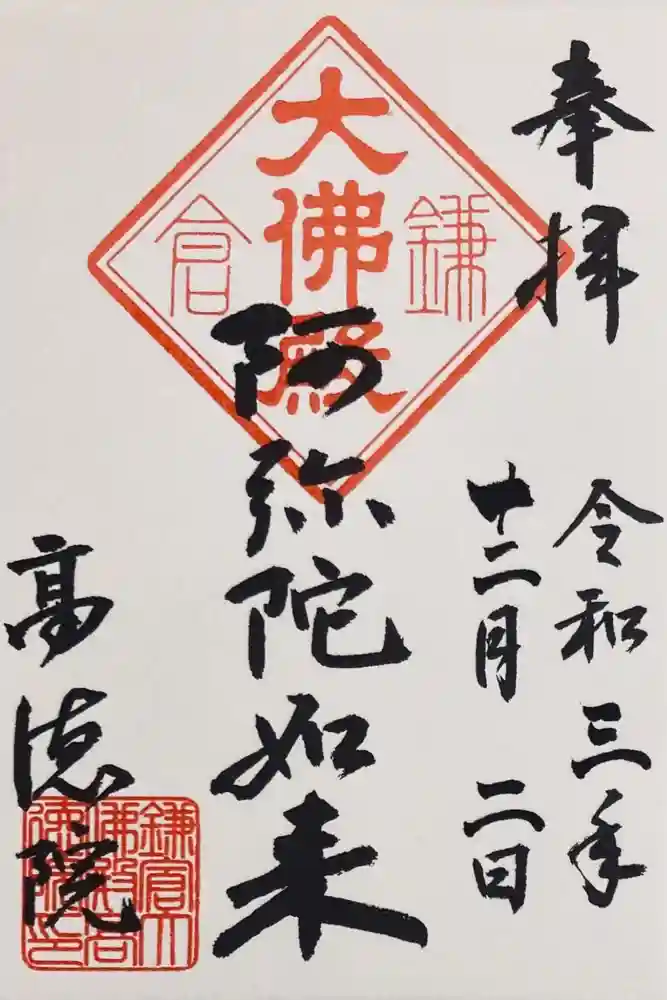 奉拝
令和三年
十二月二日
鎌倉
大佛殿
阿弥陀如来
高徳院
鎌倉大
佛殿高
徳院印